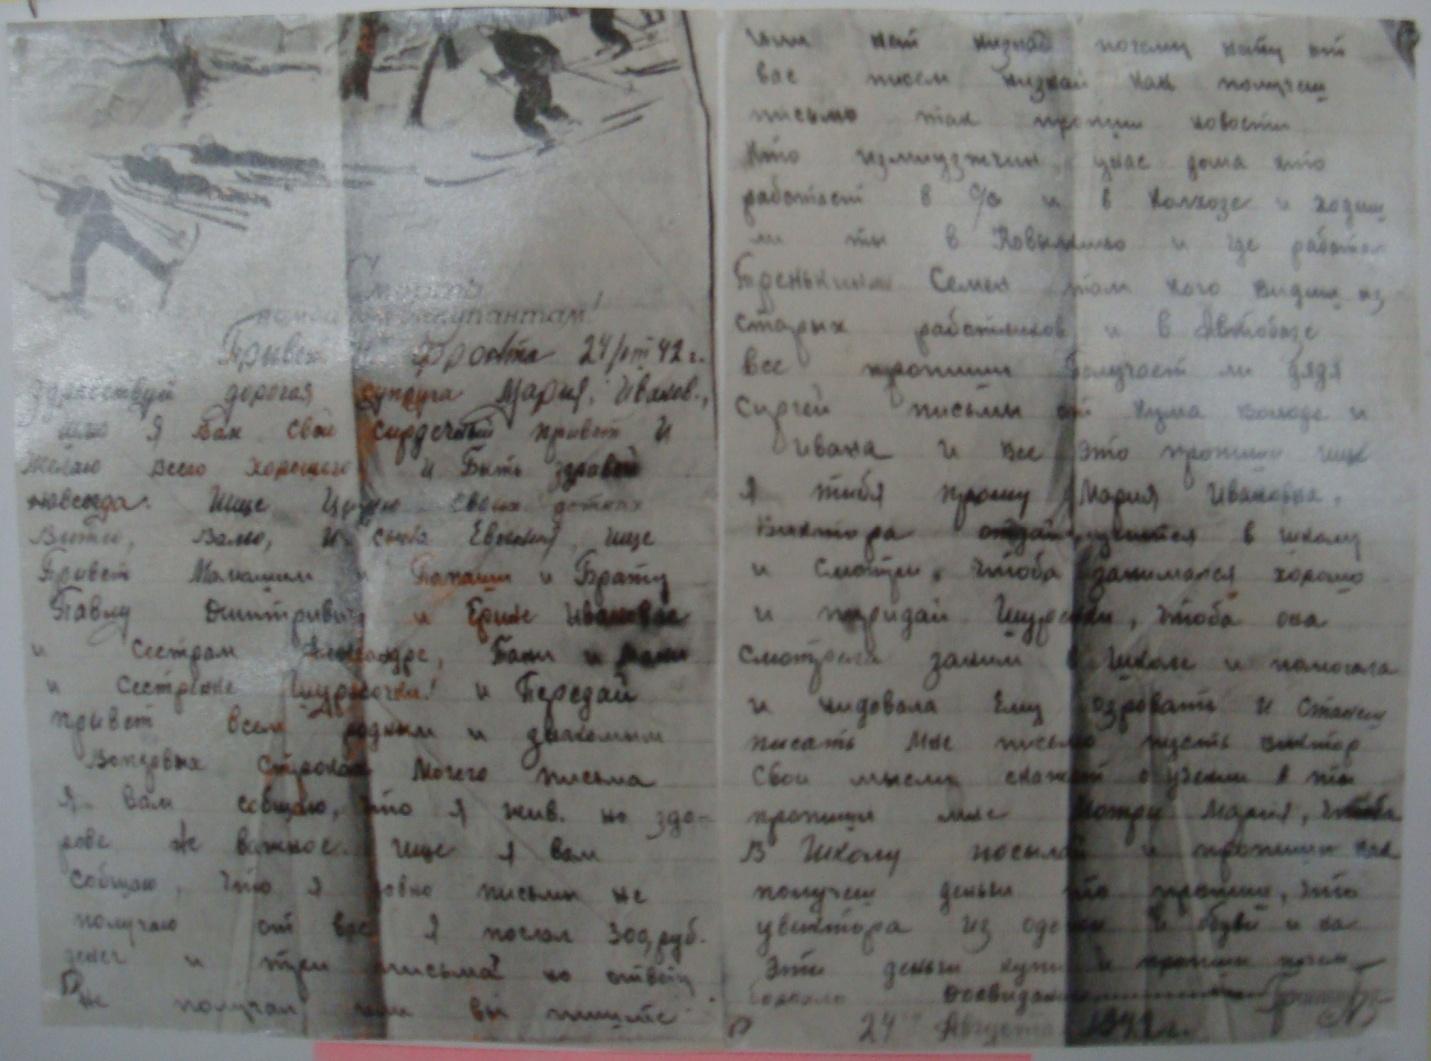 Смерть
оккупантам!
Привет с фронта 24/ 42 г.
Здравствуй дорогая супруга Мария, Иванов.,
шлю я Вам свой сирдечный привет и
желаю всего хорошего и Быть здравой
навсегда. Ище Целую своих детках
Витю, Валю, и сына Евгения, ище
Привет Мамашим и Папаши и Брату
Павлу Дмитривичу и Ерине Ивановне
и Сестрам Александре, Бани и
и Сестренке Шурочки! и Передай
привет всем родным и знакомым
Вопервых строках моего письма
Я вам собщаю, что я жив. но здо-
рове не важное. Ище я вам
собщаю, что я довно письмы не
получаю от вас Я послал 300 руб.
денег и три письма но ответу
не получал или вы пишите
или нет низнаю почему нету от
вас писем низнай как получеш
письмо так пропиши новости
Кто измиущтчин, унас дома кто
работает в с/с и в Колхозе и ходиш
ли ты в Ковылкино и где работал
Семен там кого видиш из
старых работников и в Автобазе
все пропиши Получает ли дядя
Сиргей письмы от кума Володе и
Ивана и все это пропиши ище
я тибя прошу Мария Ивановна,
Виктора отдай учится в школу
и смотри, чтоба занимался хорошо
и пиридай Шурочки, чтоба она
смотрела заним в школе и помогала
и нидовала Ему озровать и станеш
писать мне письмо пусть Виктор
свои мысли скажет о узени а ты
пропиши мне Мотри Мария, чтоба
в Школу посылай и пропиши как
получеш деньги то пропиши, что
увиктора из одежи и обуви и на
эти деньги купи и пропиши
досвидания
24 Августа 1942 г.